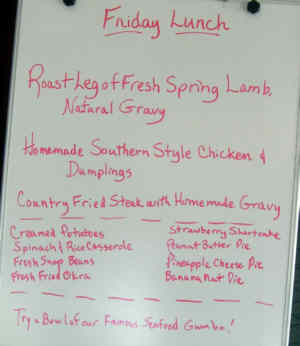 Friday Lunch
Roast Leg of Fresh Spring Lamb,
Natural Gravy
Homemade Southern Style Chicken &
Dumplings
Country Fried Steak with Homemade Gravy
Creamed Potatoes
Spinach & Rice Casserole
Fresh Snap Beans
Fresh Fried Okra
Strawberry Shortcake
Peanut Butter Pie
Pineapple Cheese Pie
Banana Nut Pie
Try a Bowl of our Famous Seafood Gumbo!